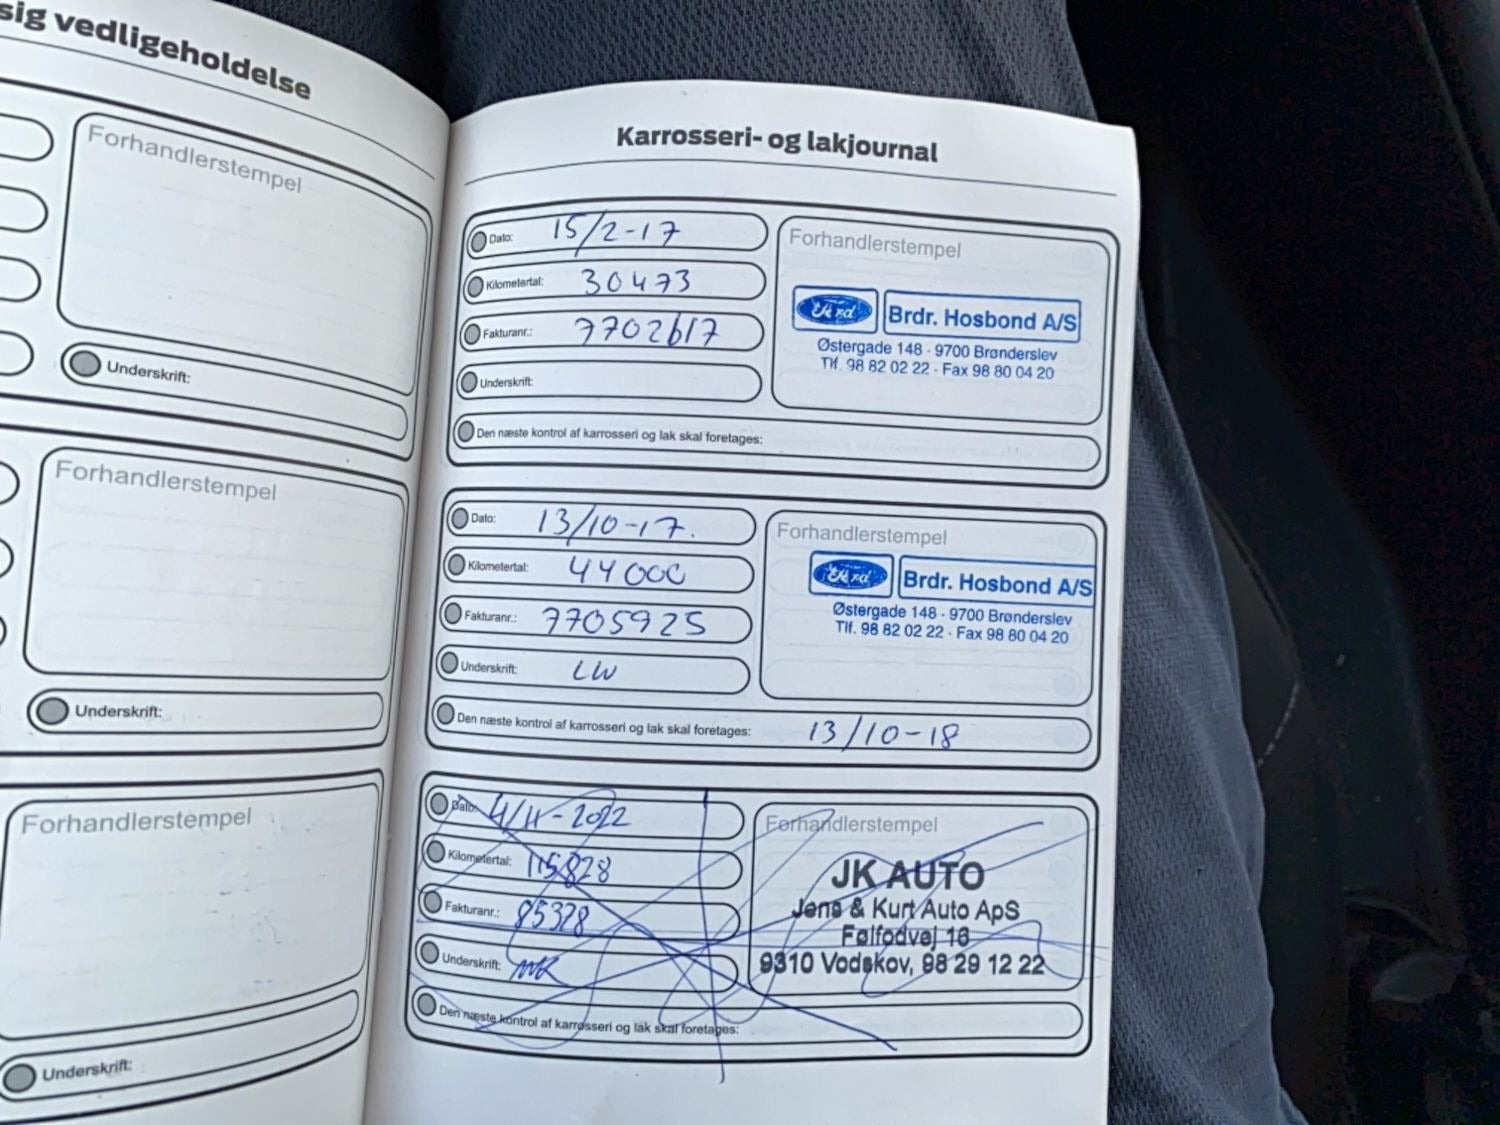 sig vedligeholdelse
Forhandlerstempel
Underskrift:
Forhandlerstempel
Underskrift:
Forhandlerstempel
Underskrift:
Karrosseri- og lakjournal
Dato: 15/2-17
Kilometertal: 30473
Fakturanr.: 7702617
Underskrift:
Den næste kontrol af karrosseri og lak skal foretages:
Forhandlerstempel
Ford Brdr. Hosbond A/S
Østergade 148 - 9700 Brønderslev
Tlf. 98 82 02 22 - Fax 98 80 04 20
Dato: 13/10-17.
Kilometertal: 44000
Fakturanr.: 7705925
Underskrift: LW
Den næste kontrol af karrosseri og lak skal foretages: 13/10-18
Forhandlerstempel
Ford Brdr. Hosbond A/S
Østergade 148 - 9700 Brønderslev
Tlf. 98 82 02 22 - Fax 98 80 04 20
Dato: 4/11-2022
Kilometertal: 115828
Fakturanr.: 85328
Underskrift:
Den næste kontrol af karrosseri og lak skal foretages:
Forhandlerstempel
JK AUTO
Jens & Kurt Auto ApS
Følfodvej 16
9310 Vodskov, 98 29 12 22